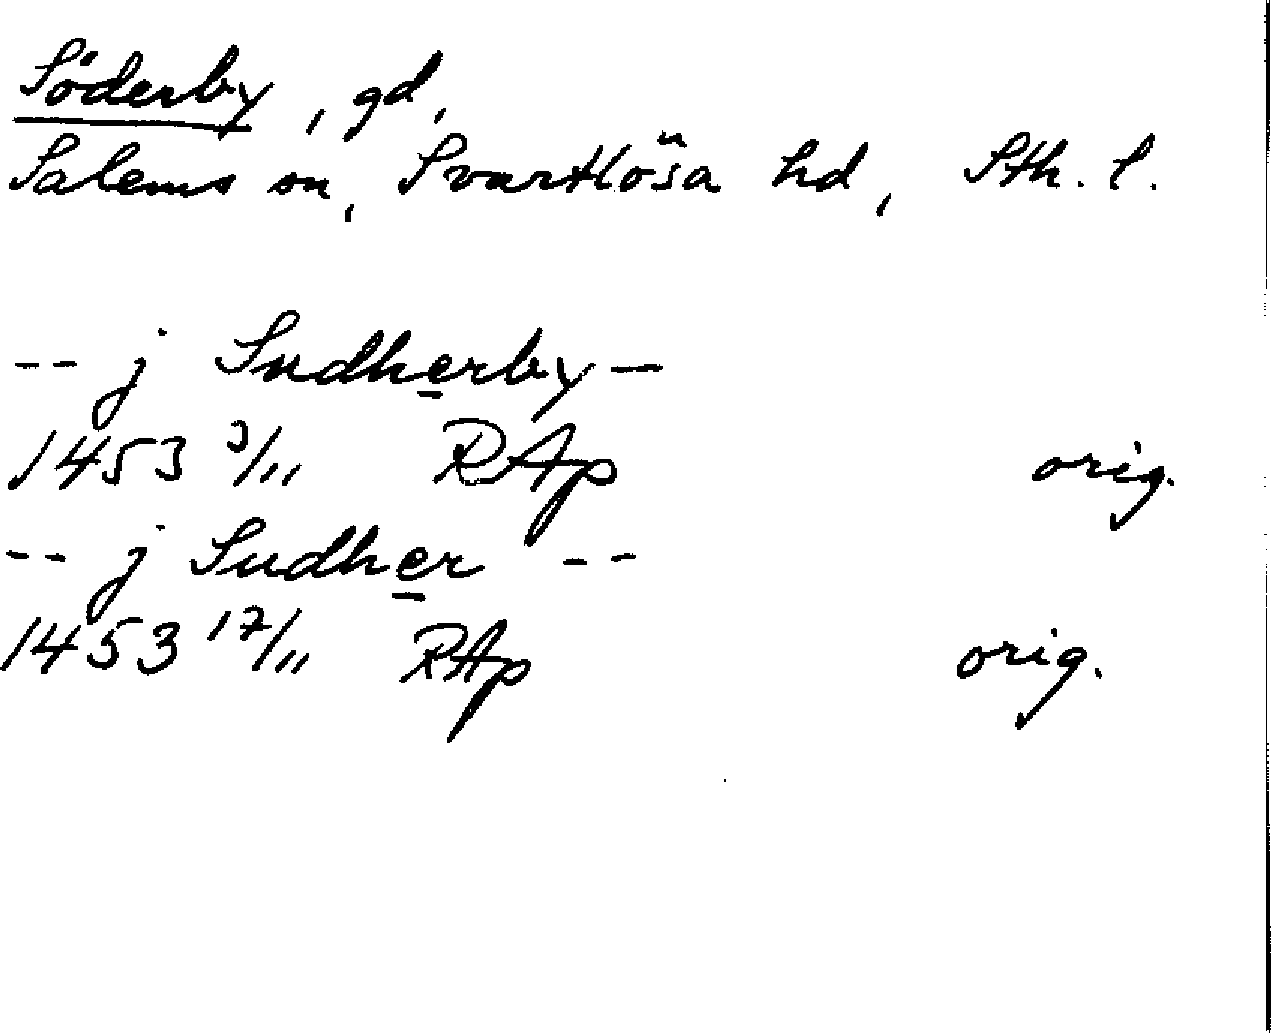 Söderby, gd,
Salems sn, Svartlösa hd, Sth. l.
-- j Sudherby -
1453 3/11 RAp orig.
-- j Sudher --
1453 17/11 RAp orig.